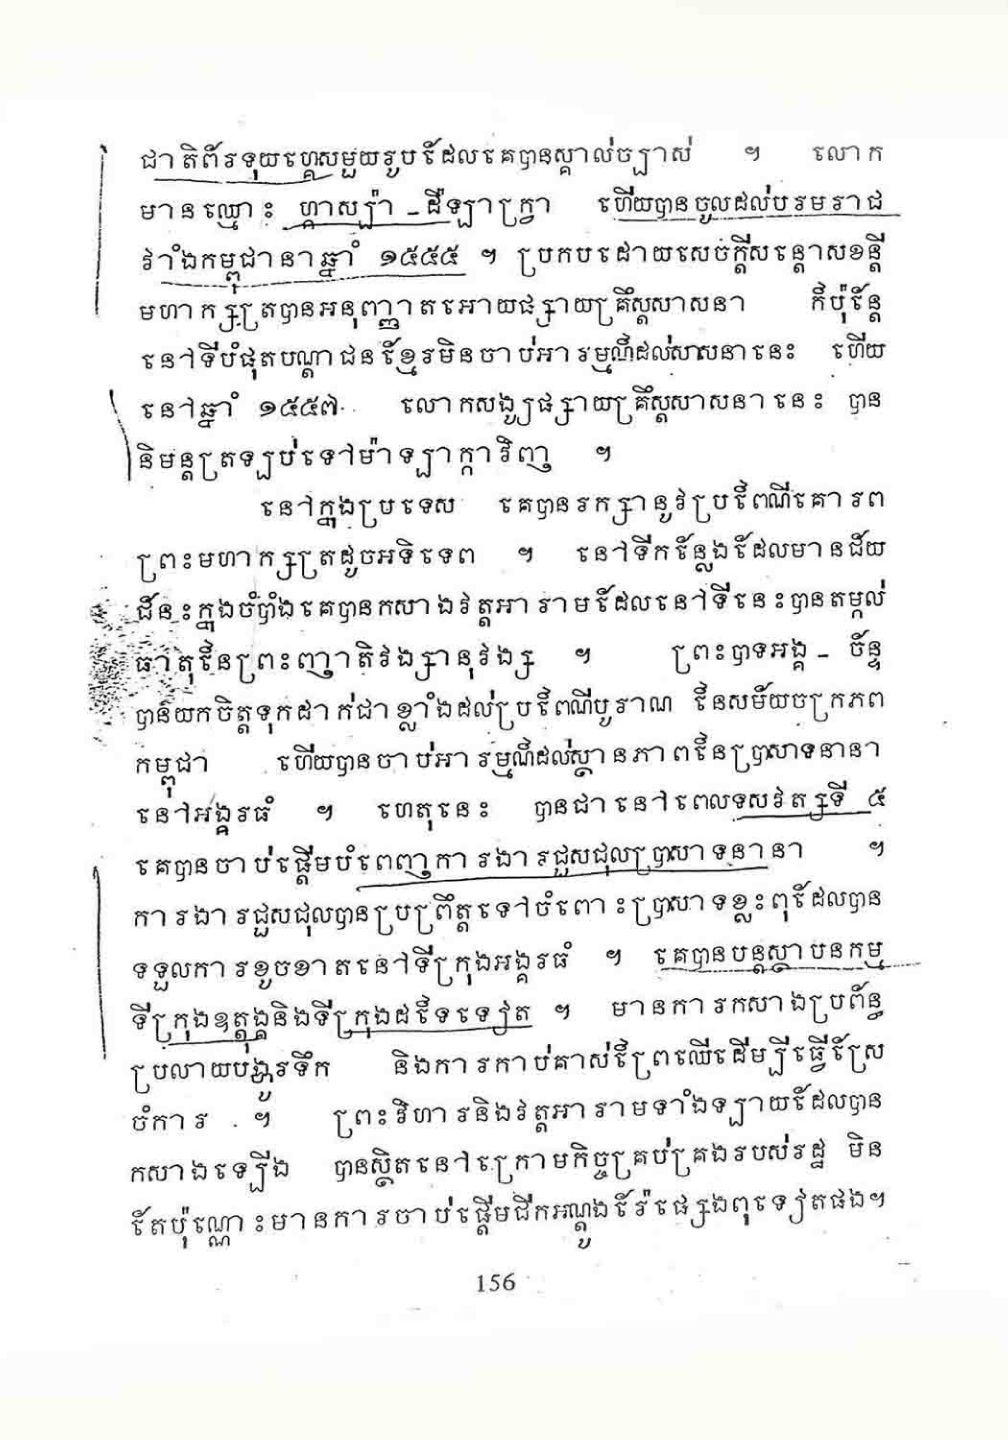 ជាតិព័រទុយហ្គេសមួយរូបដែលគេបានស្គាល់ច្បាស់ ។ លោក
មានឈ្មោះ ហ្គាស្ប៉ា _ ដឺឡាក្រូវា ហើយបានចូលដល់បរមរាជ
វាំងកម្ពុជានាឆ្នាំ ១៥៥៥ ។ ប្រកបដោយសេចក្ដីសន្ដោសខន្ដី
មហាក្សត្របានអនុញ្ញាតអោយផ្សាយគ្រឹស្តសាសនា ក៏ប៉ុន្តែ
នៅទីបំផុតបណ្ដាជនខ្មែរមិនចាប់អារម្មណ៍ដល់សាសនានេះ ហើយ
នៅឆ្នាំ ១៥៥៧ លោកសង្ឃផ្សាយគ្រឹស្តសាសនានេះ បាន
និមន្តត្រឡប់ទៅម៉ាឡាក្កាវិញ ។
នៅក្នុងប្រទេស គេបានរក្សានូវប្រពៃណីគោរព
ព្រះមហាក្សត្រដូចអទិទេព ។ នៅទីកន្លែងដែលមានជ័យ
ជំនះក្នុងចំបាំងគេបានកសាងវត្តអារាមដែលនៅទីនេះបានតម្កល់
ធាតុនៃព្រះញាតិវង្សានុវង្ស ។ ព្រះបាទអង្គ _ ច័ន្ទ
បានយកចិត្តទុកដាក់ជាខ្លាំងដល់ប្រពៃណីបូរាណ នៃសម័យចក្រភព
កម្ពុជា ហើយបានចាប់អារម្មណ៍ដល់ស្ថានភាពនៃប្រាសាទនានា
នៅអង្គរធំ ។ ហេតុនេះ បានជានៅពេលទសវត្សទី ៥
គេបានចាប់ផ្ដើមបំពេញការងារជួសជុលប្រាសាទនានា ។
ការងារជួសជុលបានប្រព្រឹត្តទៅចំពោះប្រាសាទខ្លះពុដែលបាន
ទទួលការខូចខាតនៅទីក្រុងអង្គរធំ ។ គេបានបន្តស្ថាបនកម្ម
ទីក្រុងឧត្តុង្គនិងទីក្រុងដទៃទៀត ។ មានការកសាងប្រព័ន្ធ
ប្រលាយបង្ហូរទឹក និងការកាប់គាស់ព្រៃឈើដើម្បីធ្វើស្រែ
ចំការ ។ ព្រះវិហារនិងវត្តអារាមទាំងឡាយដែលបាន
កសាងឡើង បានស្ថិតនៅក្រោមកិច្ចគ្រប់គ្រងរបស់រដ្ឋ មិន
តែប៉ុណ្ណោះមានការចាប់ផ្ដើមជីកអណ្ដូងរ៉ែផ្សេងពុទៀតផង។
156